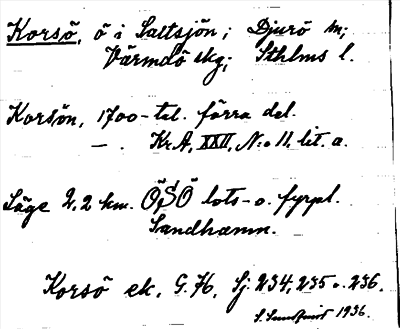 Korsö, ö i Saltsjön; Djurö sn;
Värmdö skg; Sthlms l.
Korsön, 1700-tal. förra del.
— . Kr.A, XXII, N:o 11, lit. a.
Läge 2,2 km. ÖSÖ lots- o. fyrpl.
Sandhamn.
Korsö ek. G.K. Sj. 234, 235 o. 236.
1936.